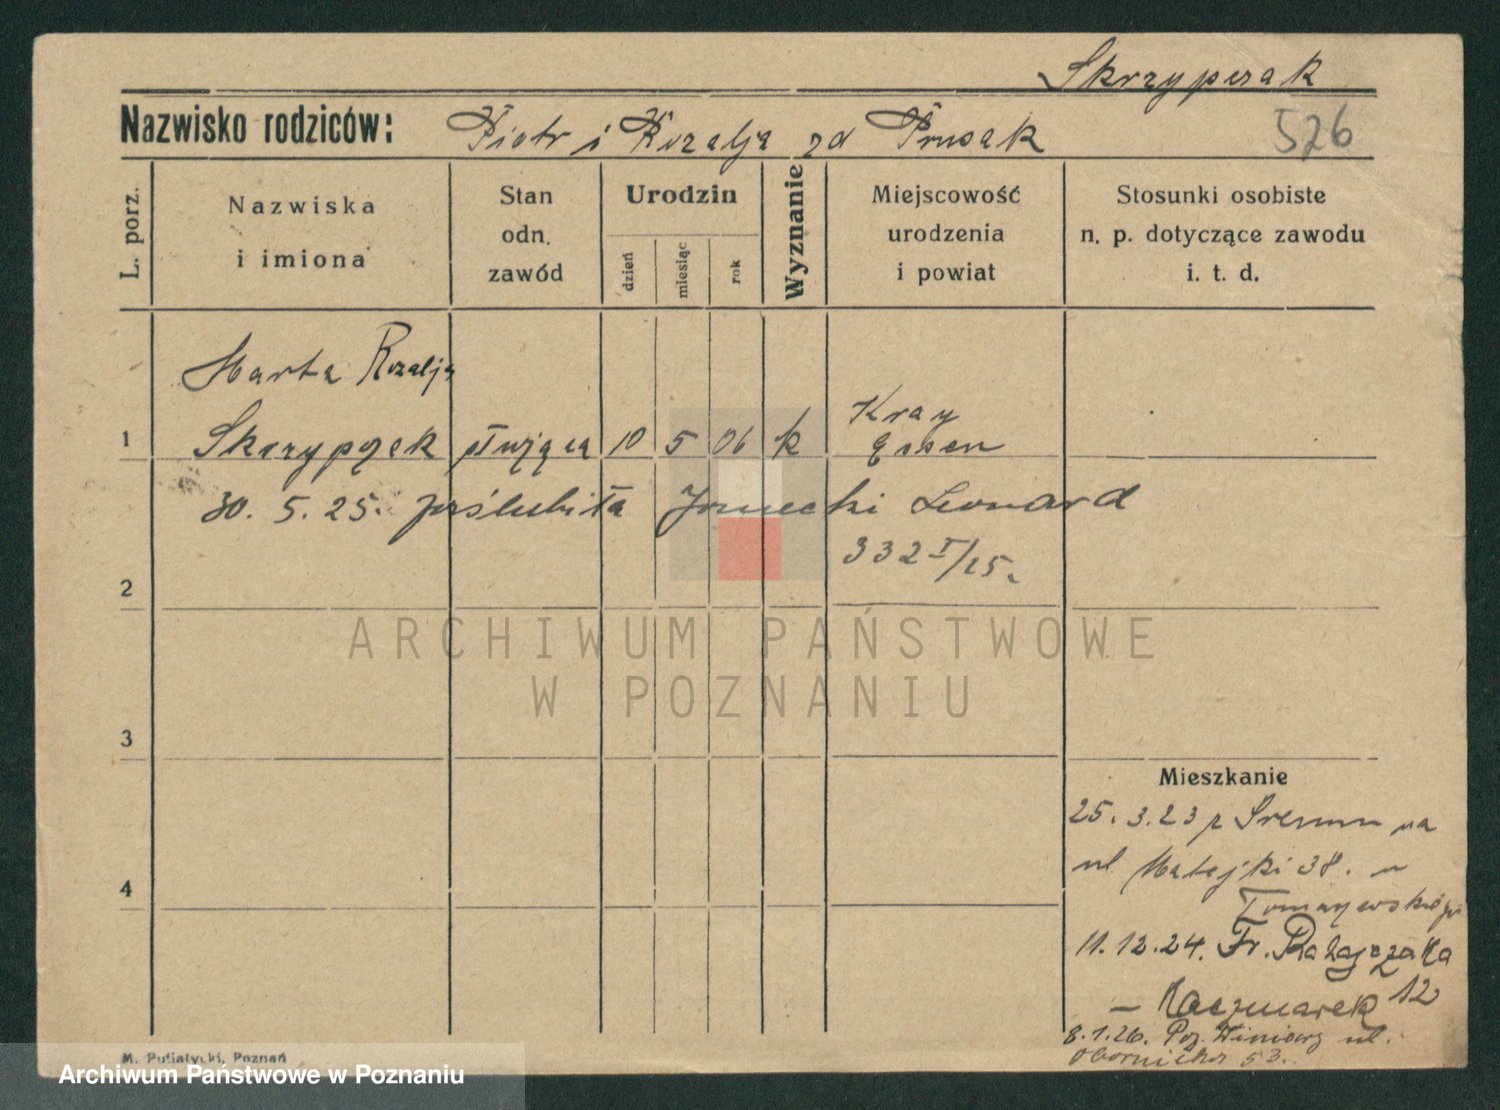 Skrzypczak
Nazwisko rodziców: Piotr i Rozalja zd Prusak 526
L. porz.
Nazwiska
i imiona
Stan
odn.
zawód
Urodzin
dzień
miesiąc
rok
Wyznanie
Miejscowość
urodzenia
i powiat
Stosunki osobiste
n. p. dotyczące zawodu
i. t. d.
Marta Rozalja
1 Skrzypczek służąca 10 5 06 k Kray
Essen
30. 5. 25. poślubiła Leonard
332 I/25.
2
ARCHIWUM PAŃSTWOWE
W POZNANIU
3
Mieszkanie
25. 3. 23 z Śremu na
ul Matejki 38. u
4
11. 12. 24. Fr. Ratajczaka
12
– Kaczmarek
8. 1. 26. Poz. Winiary ul.
Obornicka 53.
M. Putiatycki, Poznań
Archiwum Państwowe w Poznaniu